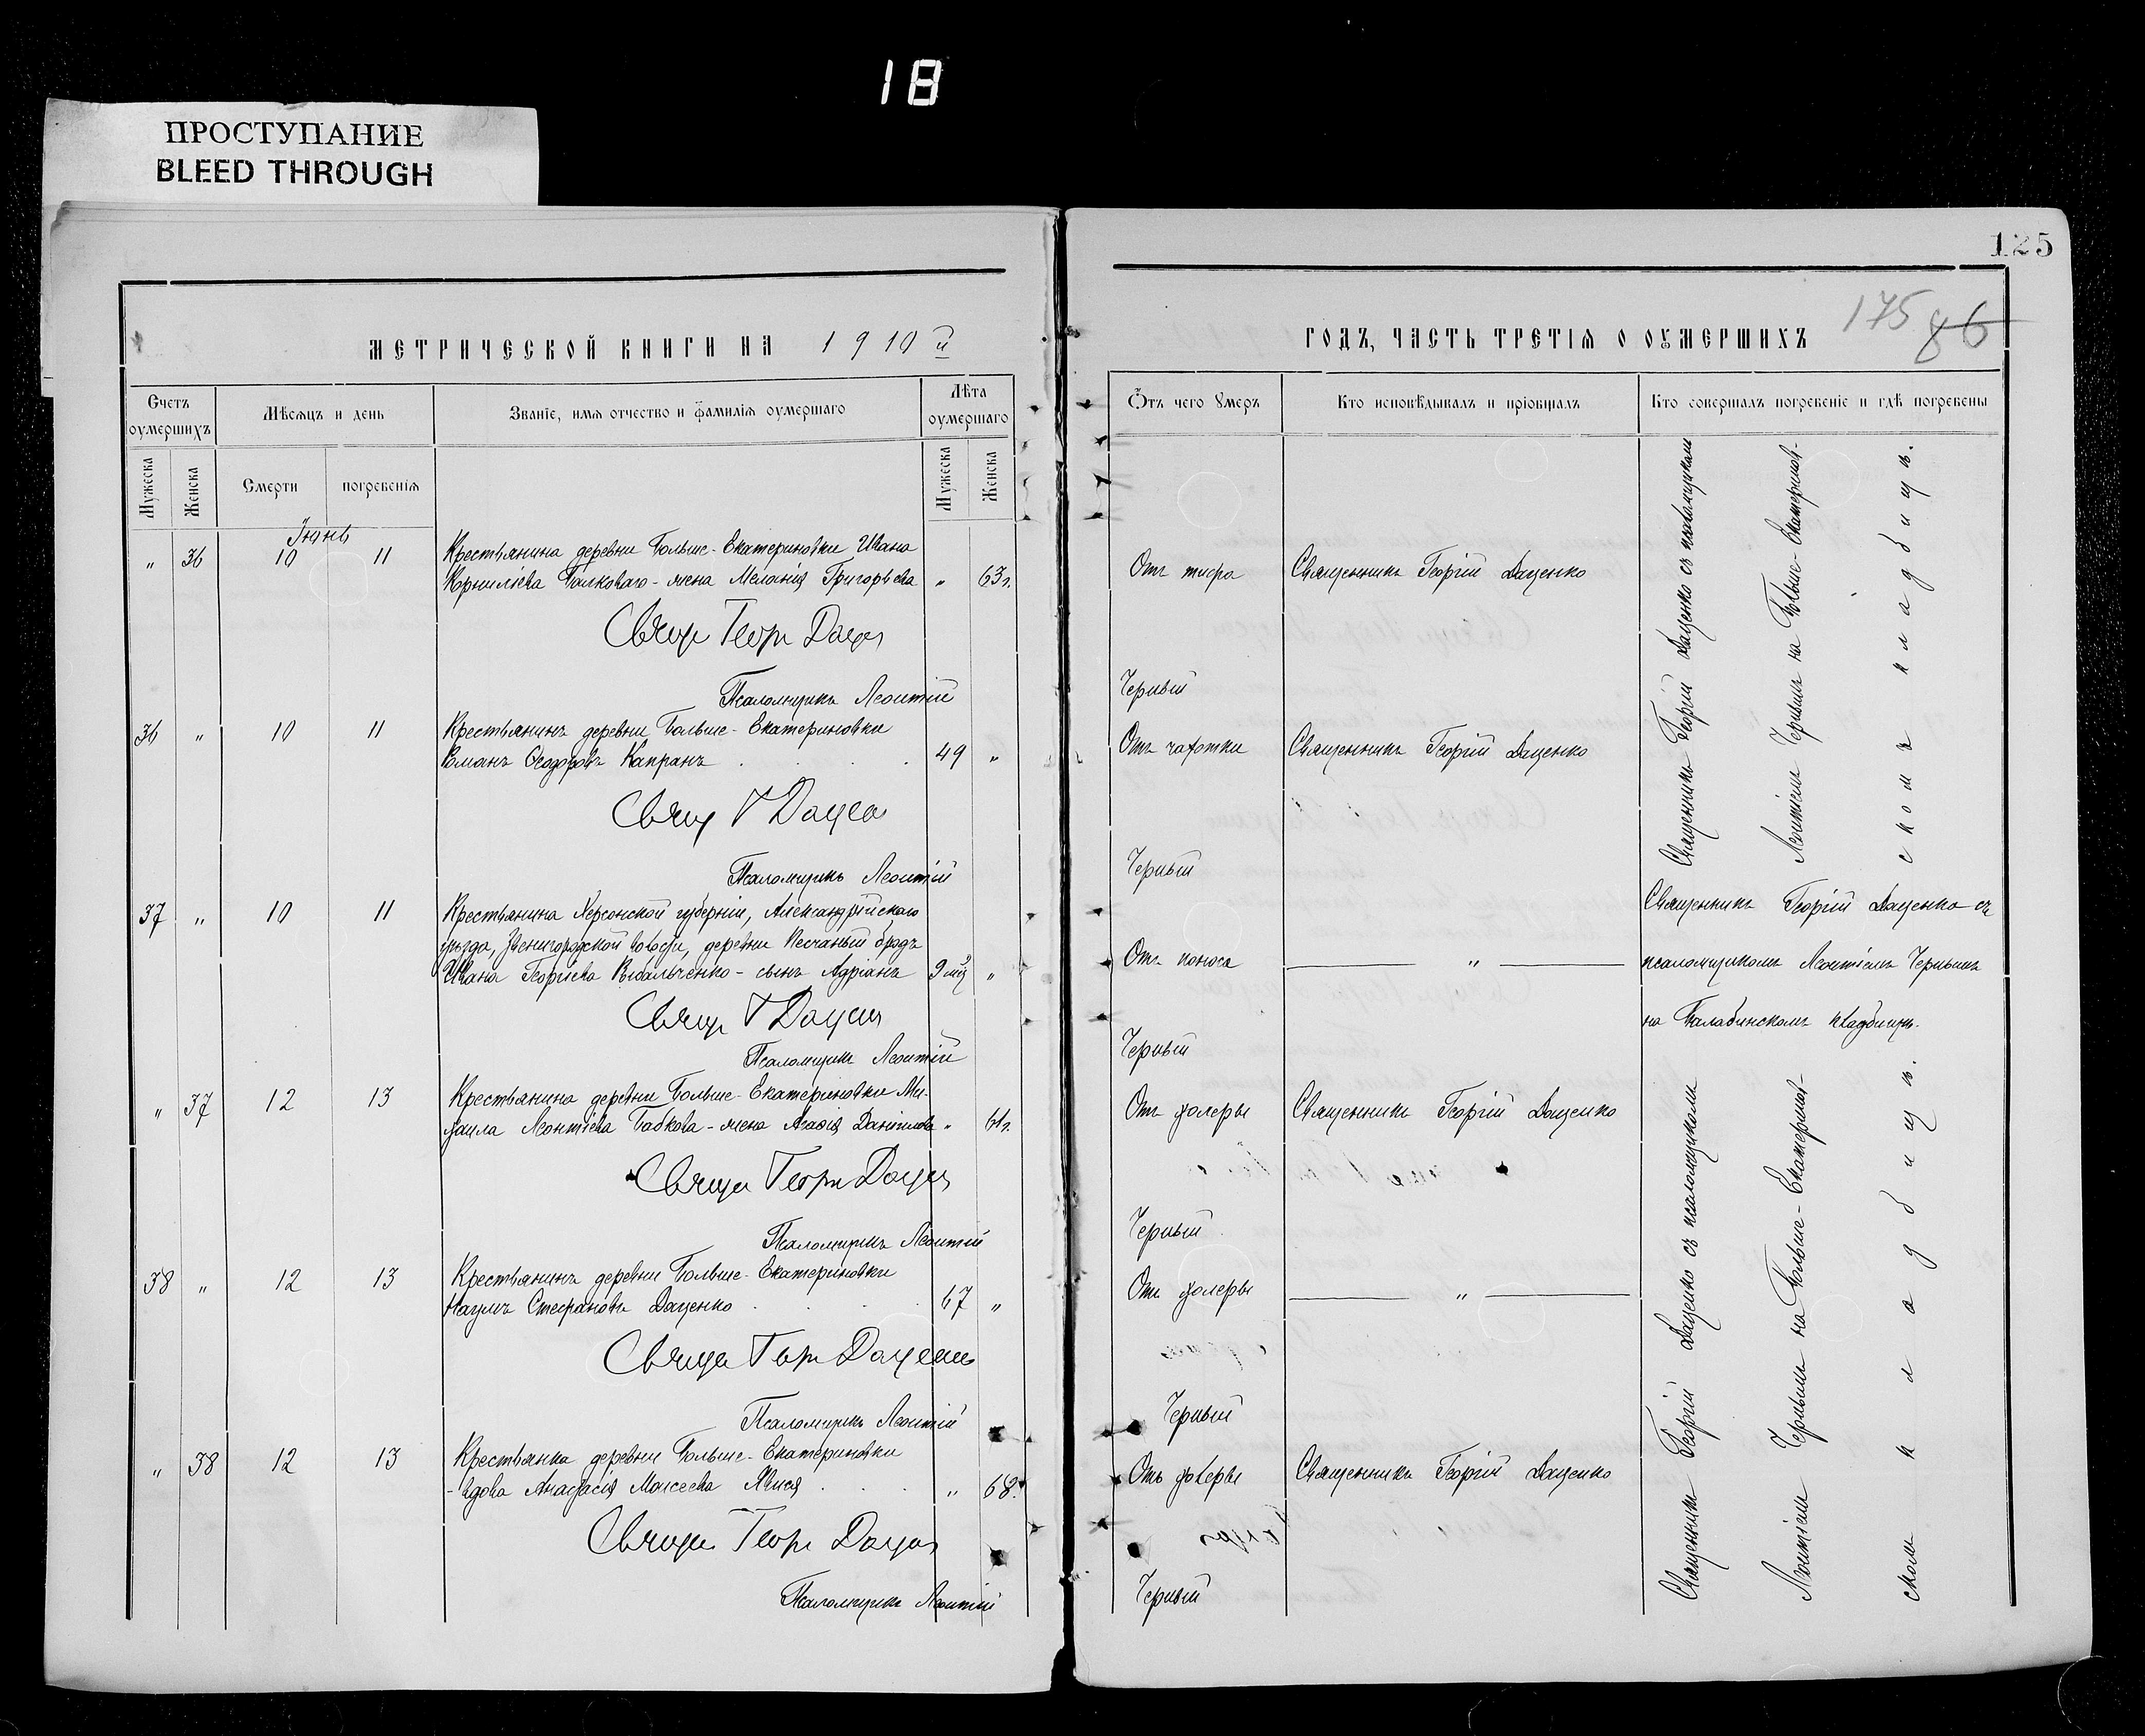 18
ПРОСТУПАНИЕ
BLEED THROUGH
125
175 86
МЕТРИЧЕСКОЙ КНИГИ НА 1910й
ГОДЪ, ЧАСТЬ ТРЕТІЯ О ОУМЕРШИХЪ
Счетъ оумершихъ
Мѣсяцъ и день
Званіе, имя отчество и фамилія оумершаго
Лѣта оумершаго
Ѿтъ чего Умеръ
Кто исповѣдывалъ и пріобщалъ
Кто совершалъ погребеніе и гдѣ погребены
Мужеска
Женска
Смерти
погребенія
Мужеска
Женска
Іюнь
" 36 10 11 Крестьянина деревни Больше-Екатериновки Ивана
Корниліева жена Меланія Григорьева " 63г. Отъ тифа Священникъ Георгій Даценко
Псаломщикъ Леонтій Черный
36 " 10 11 Крестьянинъ деревни Больше-Екатериновки
Романъ Ѳеодоровъ Капранъ 49 " Отъ чахотки Священникъ Георгій Даценко
Псаломщикъ Леонтій Черный
Священникъ Георгій Даценко съ псаломщикомъ
Леонтіемъ Чернымъ на Больше-Екатеринов-
скомъ кладбищѣ.
37 " 10 11 Крестьянина Херсонской губерніи, Александрійскаго
уѣзда, Звенигородской волости, деревни Песчаный Бродъ
Ивана Георгіева сынъ Адріанъ 9 мц " Отъ поноса "
Псаломщикъ Леонтій Черный
Священникъ Георгій Даценко съ
псаломщикомъ Леонтіемъ Чернымъ
на кладбищѣ.
" 37 12 13 Крестьянина деревни Больше-Екатериновки Ми-
хаила Леонтіева Бабкова - жена Агафія Даніилова " 61г. Отъ холеры Священникъ Георгій Даценко
Псаломщикъ Леонтій Черный
38 " 12 13 Крестьянинъ деревни Больше-Екатериновки
Наумъ Стефановъ Даценко 67 " Отъ холеры "
Псаломщикъ Леонтій Черный
" 38 12 13 Крестьянка деревни Больше-Екатериновки
- вдова Анастасія Моисеева " 68. Отъ холеры Священникъ Георгій Даценко
Псаломщикъ Леонтій Черный
Священникъ Георгій Даценко съ псаломщикомъ
Леонтіемъ Чернымъ на Больше-Екатеринов-
скомъ кладбищѣ.